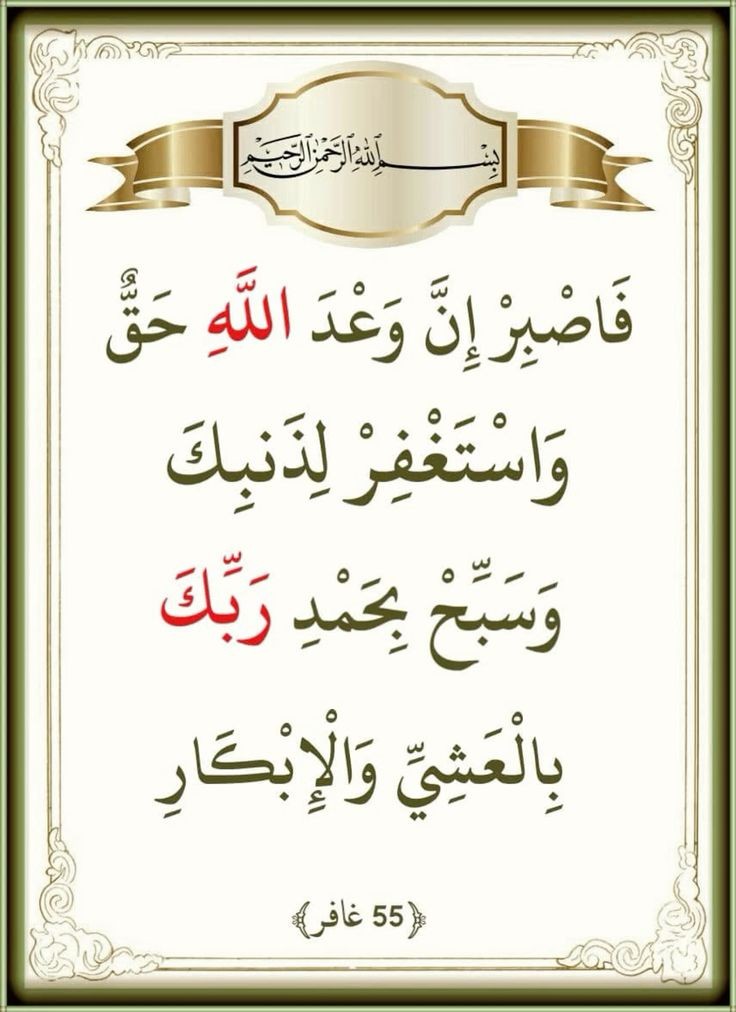 بِسْمِ ٱللَّهِ ٱلرَّحْمَٰنِ ٱلرَّحِيمِ
فَاصْبِرْ إِنَّ وَعْدَ اللَّهِ حَقٌّ
وَاسْتَغْفِرْ لِذَنبِكَ
وَسَبِّحْ بِحَمْدِ رَبِّكَ
بِالْعَشِيِّ وَالْإِبْكَارِ
﴿55 غافر﴾